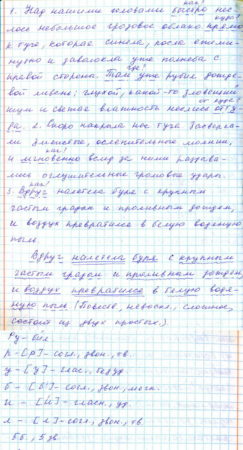 как?
1. Над нашими головами быстро нес-
лось небольшое грозовое облако прямо
к туче, которая синела, росла ежеми-
нутно и заволокла уже полнеба с
где?
правой сторона. Там уже рубил дожде-
вой ливень; глухой, какой-то зловещий
от куда?
шум и свежая влажность неслись отту-
да. 2. Скоро накрыла нас туча засверка-
ли блистые, ослепительные молнии,
как?
и мгновенно вслед за ними раздава-
лись оглушительные громовые удары.
как?
3. Вдруг налетела буря с крупным
частым градом и проливным дождём,
и воздух превратился в белую водяную
пыль
Вдруг налетела буря с крупным
частым градом и проливным дождем,
и воздух превратился в белую водя-
ную пыль (Повеств., невоскл., сложное,
состоит из двух простых.)
Ру-бил
р - [р] - согл., звон., тв.
у - [у] - глас., безуд.
б - [б'] - согл., звон., мягк.
и - [и] - гласн., уд.
л - [л] - согл., звон., тв.
5 б., 5 зв.